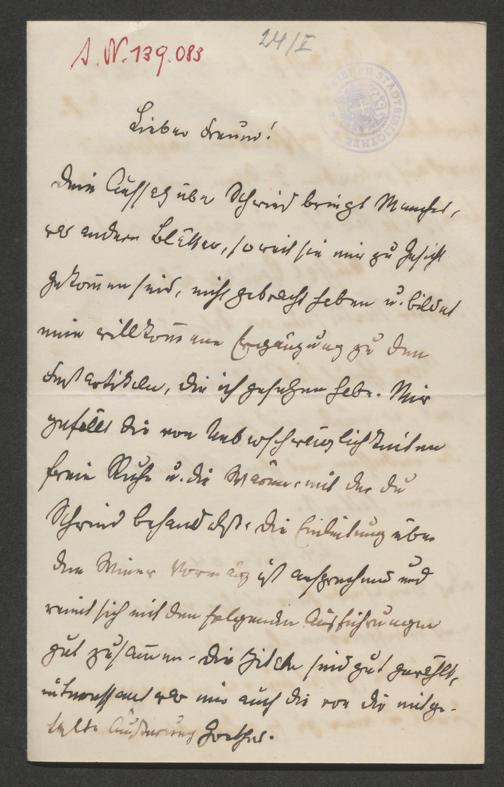 J. N. 139.083
24/I
Lieber Freund!
Dein Aufsatz über Schwind bringt Manches,
was andere Blätter, soweit sie mir zu Gesicht
gekommen sind, nicht gebracht haben u. bildet
eine willkommene Ergänzung zu den
Festartikeln, die ich gesehen habe. Mir
gefällt die von Ueberschwänglichkeiten
freie Ruhe u. die Wärme, mit der du
Schwind behandelst. Die Einleitung über
den Wiener ist ansprechend und
reimt sich mit den folgenden Ausführungen
gut zusammen. Die Zitate sind gut gewählt,
interessant war mir auch die von dir mitge-
teilte Äußerung Goethes.